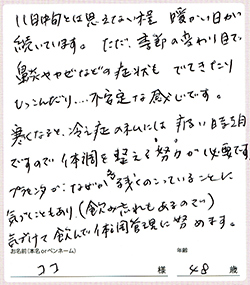 11月中旬とは思えない程 暖かい日が
続いています。ただ、季節の変わり目で
鼻炎やかぜなどの症状も でてきたり
ひっこんだり‥‥不安定な感じです。
寒くなると、冷え症の私には 辛い時期
ですので 体調を 整える 努力が 必要です
プラセンタが、なぜか 多く残っていることに
気づくこともあり、(飲み忘れもあるので)
気づけて 飲んで 体調管理に 努めます。
お名前(本名orペンネーム)
年齢
ココ 様 48 歳